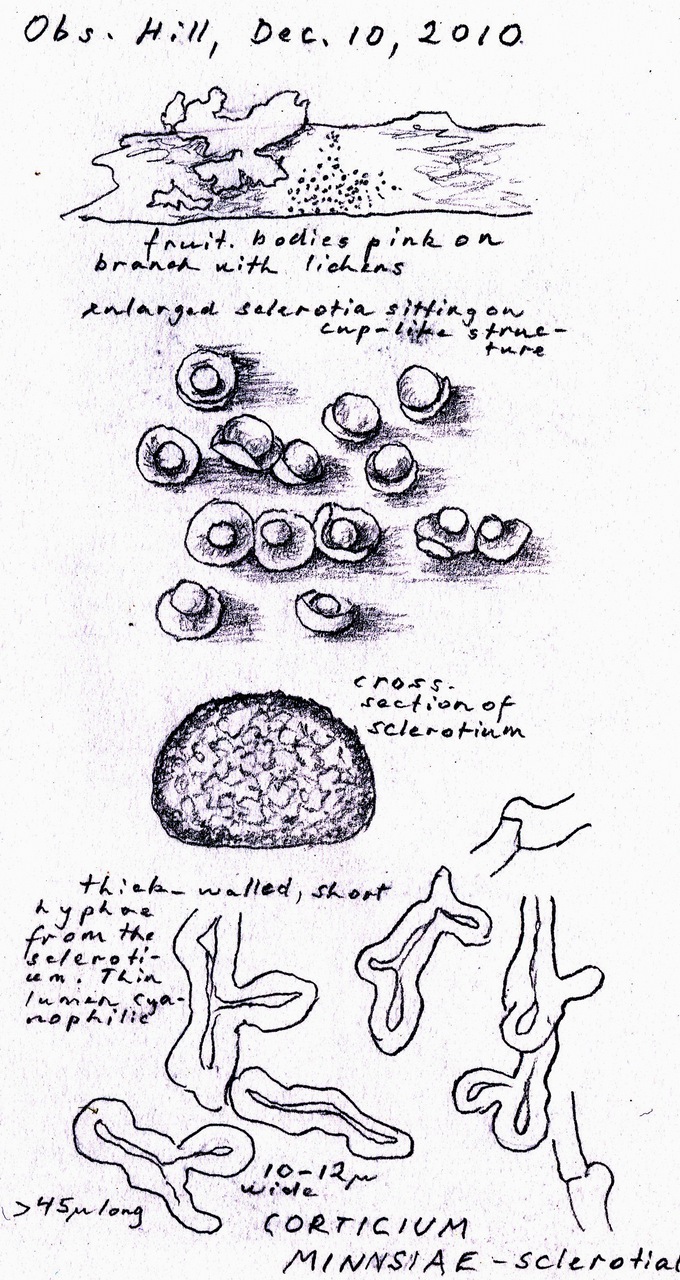 Obs. Hill, Dec. 10, 2010
fruit. bodies pink on
branch with lichens
enlarged sclerotia sitting on
cup-like struc-
ture
cross-
section of
sclerotium
thick-walled, short
hyphae
from the
scleroti-
um. Thin
lumen cya-
nophilic
10-12µ
wide
>45µ long
CORTICIUM
MINNSIAE - sclerotial